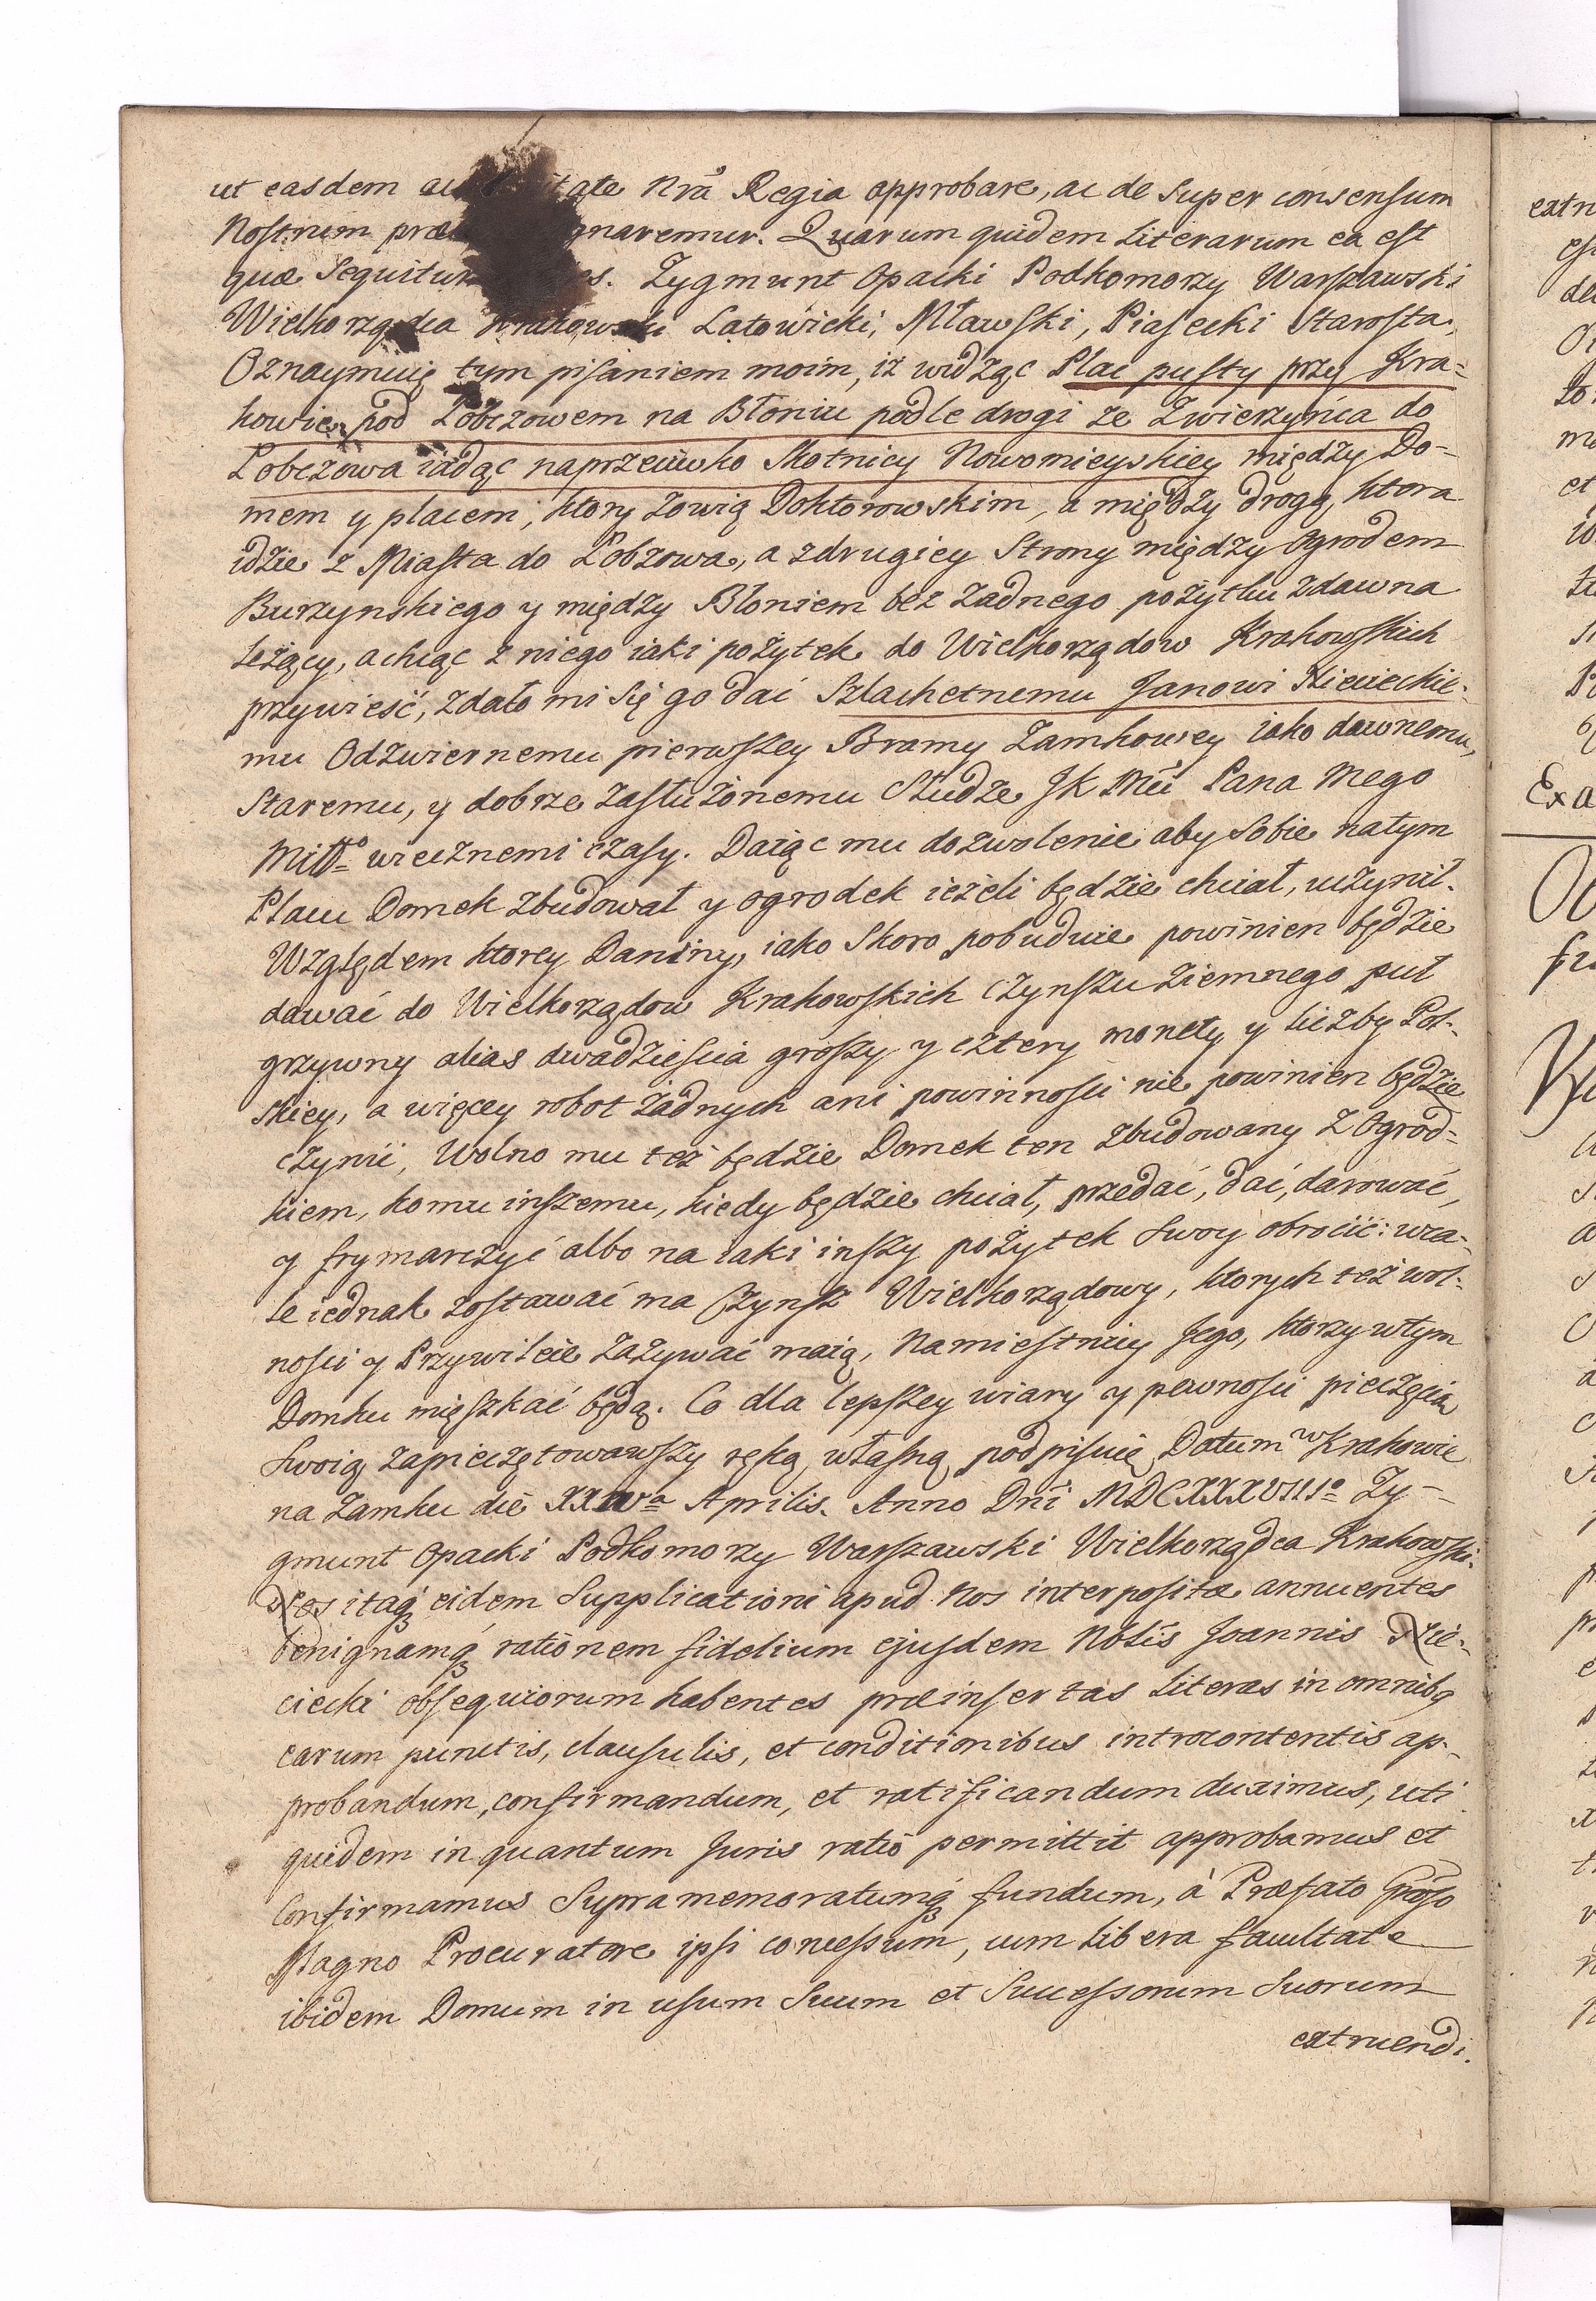 ut easdem au itate Nrã Regia approbare, ac de super consensum
Nostrum præ gnaremur. Quarum quidem Literarum ea est
quæ Sequitur es. Zygmunt Opacki Podkomorzy Warszawski
Wielkorządca Krakowski Latowicki, Mławski, Piasecki Starosta,
Oznaymuię tym pisaniem moim, iż widząc Plac pusty przy Kra=
kowie pod Łobzowem na Błoniu podle drogi ze Zwierzyńca do
Łobczowa iadąc naprzeciwko Skotnicy Nowomieyskiey między Do-
mem y placem, ktory zowią Doktorowskim, a między drogą, ktora
idzie z Miasta do Łobzowa, a zdrugiey Strony między Ogrodem
Burzynskiego y między Błoniem bez żadnego pożytku zdawna
leżący, a chcąc z niego iaki pożytek do Wielkorządow Krakowskich
przywieść, zdało mi się go dać Szlachetnemu Janowi Niecieckie-
mu Odzwiernemu pierwszey Bramy Zamkowey iako dawnemu,
Staremu, y dobrze zasłużonemu Słudze JK Mći Pana Mego
Miłłº wiecznemi czasy. Daiąc mu dozwolenie aby Sobie natym
Placu Domek zbudował y ogrodek ieżeli będzie chciał, uczynił.
Względem ktorey Daniny, iako Skoro pobuduie powinien będzie
dawać do Wielkorządow Krakowskich Czynszu ziemnego puł
grzywny alias dwadzieścia groszy y cztery monety y liczby Pol-
skiey, a więcey robot żadnych ani powinności nie powinien będzie
czynić, Wolno mu też będzie Domek ten zbudowany z Ogrod=
kiem, komu inszemu, kiedy będzie chciał, przedać, dać, darować,
y frymarczyć albo na iaki inszy pożytek Swoy obrocić: wca-
le iednak zostawać ma Czynsz Wielkorządowy, ktorych też wol-
ności y Przywileie zażywać maią, Namiestnicy Jego, ktorzy wtym
Domku mięszkać będą. Co dla lepszey wiary y pewności pieczęcią
Swoią zapieczętowawszy ręką własną podpisuię Datum w Krakowie
na Zamku die Aprilis. Anno Dni MDCXXXVIIIº Zy-
gmunt Opacki Podkomorzy Warszawski Wielkorządca Krakowski.
Nos itaq; eidem Supplicationi apud Nos interpositæ annuentes
benignamq; rationem fidelium ejusdem Nobis Joannis Nie-
ciecki obsequiorum habentes præinsertas Literas in omnibq
earum punctis, clausulis, et conditionibus introcontentis ap-
probandum, confirmandum, et ratificandum duximus, uti
quidem in quantum Juris ratio permittit approbamus et
Confirmamus Supramemoratumq; fundum, à Præfato Gnõso
Magno Procuratore ipsi concessum, cum libera facultate
ibidem Domum in usum Suum et Successorum Suorum
extruendi.